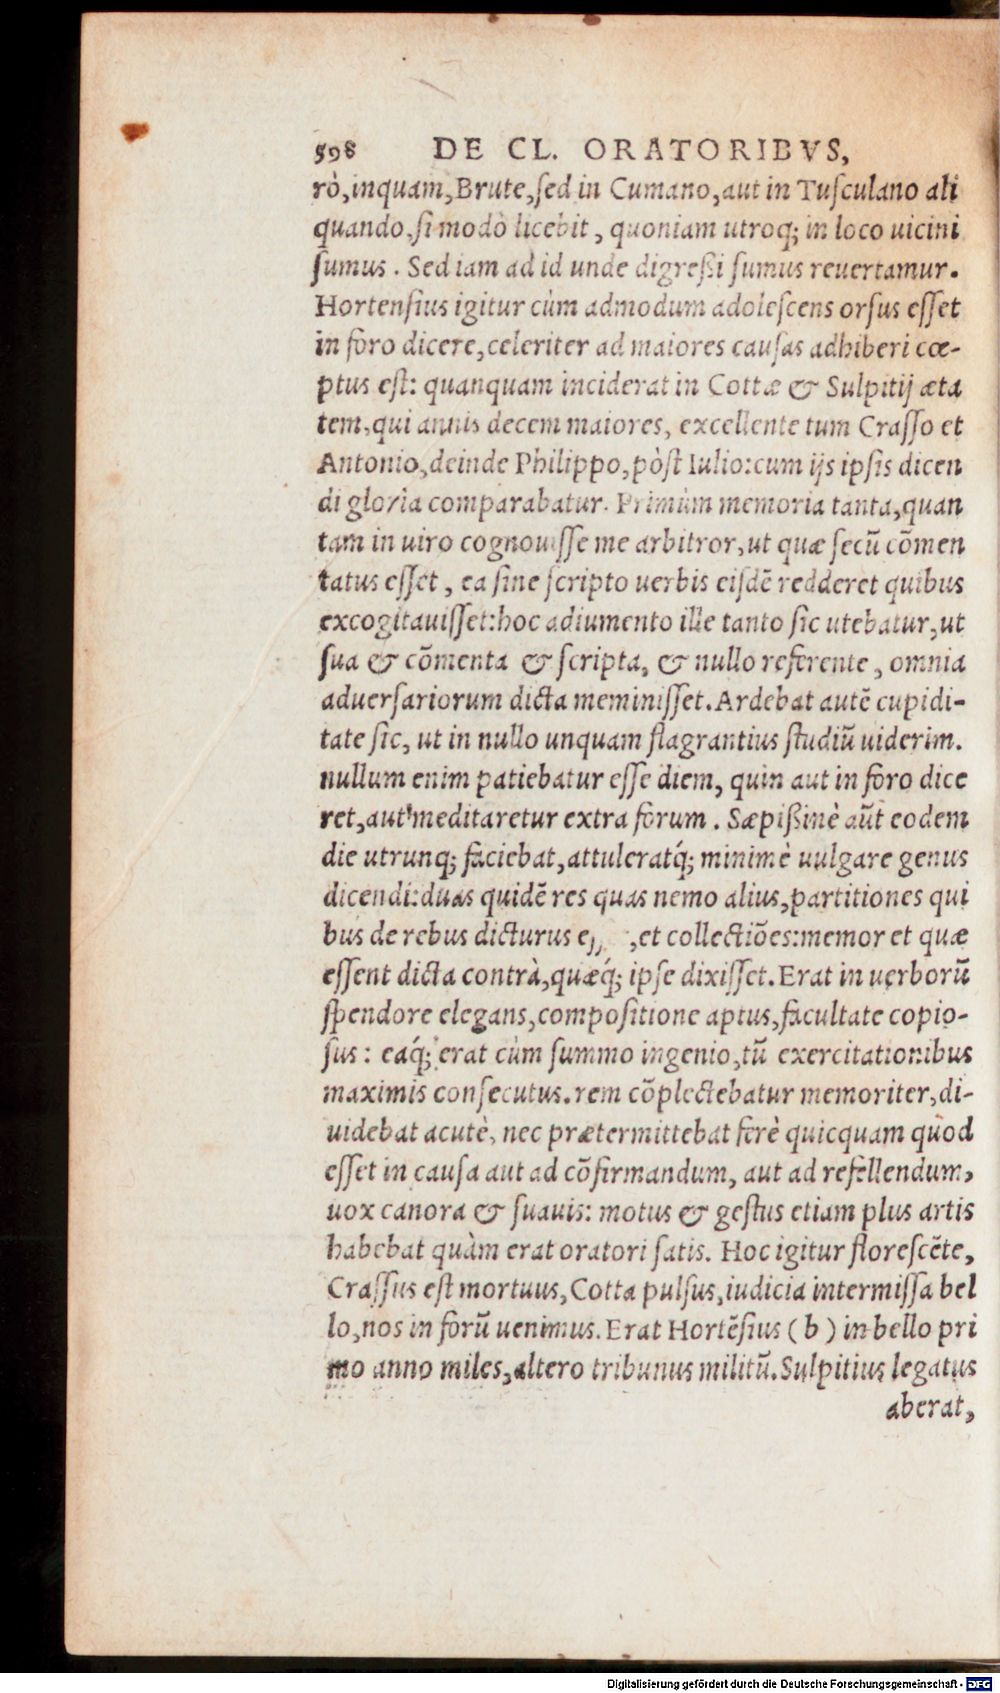 598 DE CL. ORATORIBVS,
rò, inquam, Brute, sed in Cumano, aut in Tusculano ali
quando, si modò licebit, quoniam utroq; in loco uicini
sumus. Sed iam ad id unde digreßi sumus reuertamur.
Hortensius igitur cùm admodum adolescens orsus esset
in foro dicere, celeriter ad maiores causas adhiberi cœ-
ptus est: quanquam inciderat in Cottæ & Sulpitij æta
tem, qui annis decem maiores, excellente tum Crasso et
Antonio, deinde Philippo, pòst Iulio: cum ijs ipsis dicen
di gloria comparabatur. Primùm memoria tanta, quan
tam in uiro cognouisse me arbitror, ut quæ secũ cõmen
tatus esset, ea sine scripto uerbis eisdẽ redderet quibus
excogitauisset: hoc adiumento ille tanto sic utebatur, ut
sua & cõmenta & scripta, & nullo referente, omnia
aduersariorum dicta meminisset. Ardebat autẽ cupidi-
tate sic, ut in nullo unquam flagrantius studiũ uiderim.
nullum enim patiebatur esse diem, quin aut in foro dice
ret, aut meditaretur extra forum. Sæpißimè aũt eodem
die utrunq; faciebat, attuleratq́; minimè uulgare genus
dicendi: duas quidẽ res quas nemo alius, partitiones qui
bus de rebus dicturus , et collectiões: memor et quæ
essent dicta contrà, quæq́; ipse dixisset. Erat in uerborũ
spendore elegans, compositione aptus, facultate copio-
sus: eaq́; erat cùm summo ingenio, tũ exercitationibus
maximis consecutus. rem cõplectebatur memoriter, di-
uidebat acutè, nec prætermittebat ferè quicquam quod
esset in causa aut ad cõfirmandum, aut ad refellendum,
uox canora & suauis: motus & gestus etiam plus artis
habebat quàm erat oratori satis. Hoc igitur florescẽte,
Crassus est mortuus, Cotta pulsus, iudicia intermissa bel
lo, nos in forũ uenimus. Erat Hortẽsius (b) in bello pri
mo anno miles, altero tribunus militũ. Sulpitius legatus
aberat,
Digitalisierung gefördert durch die Deutsche Forschungsgemeinschaft - DFG